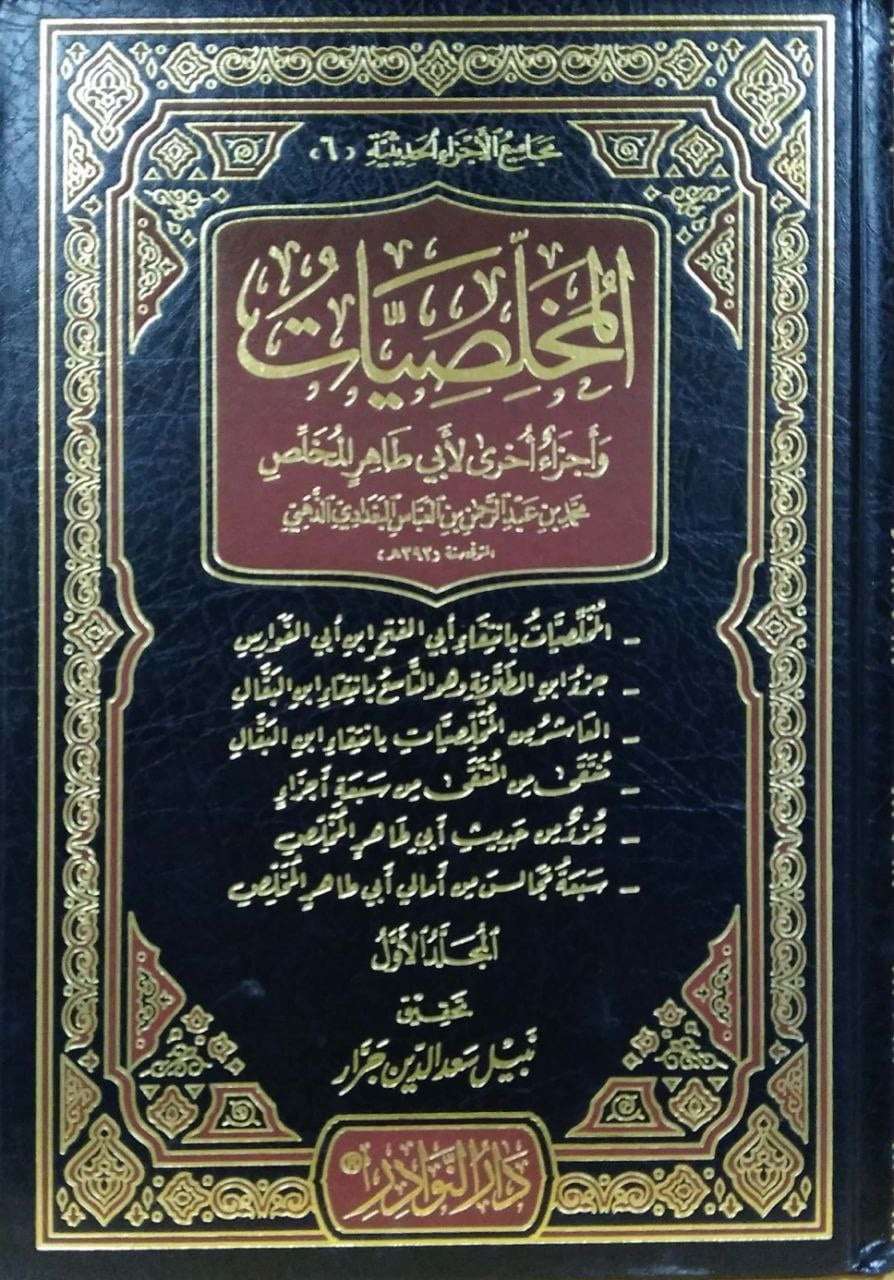 مجاميع الأجزاء الحديثية «٦»
المُخَلِّصِيَّاتُ
وَأَجْزَاءٌ أُخْرَىٰ لأَبِي طَاهِرٍ المُخَلِّصِ
مُحَمَّد بْنِ عَبْدِ الرَّحْمٰنِ بْنِ العَبَّاسِ البَغْدَادِيِّ الذَّهَبِيِّ
المتوفى سنة «٣٩٣هـ»
- المُخَلِّصِيَّاتُ بانتِقَاءِ أبي الفتحِ ابنِ أبي الفَوارِسِ
- جزءُ ابنِ الطَّلَّايَةِ وهو التَّاسعُ بانتِقَاءِ ابنِ البَقَّالِ
- العَاشرُ مِن المُخَلِّصِيَّاتِ بانتِقَاءِ ابنِ البَقَّالِ
- مُنتَقَىً مِن المُنْتَقَىٰ مِن سَبعَةِ أجزَاءٍ
- جُزءٌ مِن حَديثِ أبي طَاهرٍ المُخَلِّصِ
- سَبعَةُ مَجَالسَ مِن أَمَالي أَبي طاهرٍ المُخَلِّصِ
المُجَلَّدُ الأَوَّلُ
تحقِيق
نَبيْل سَعد الدِّين جَرَّار
دَارُ النَّوَادِرِ